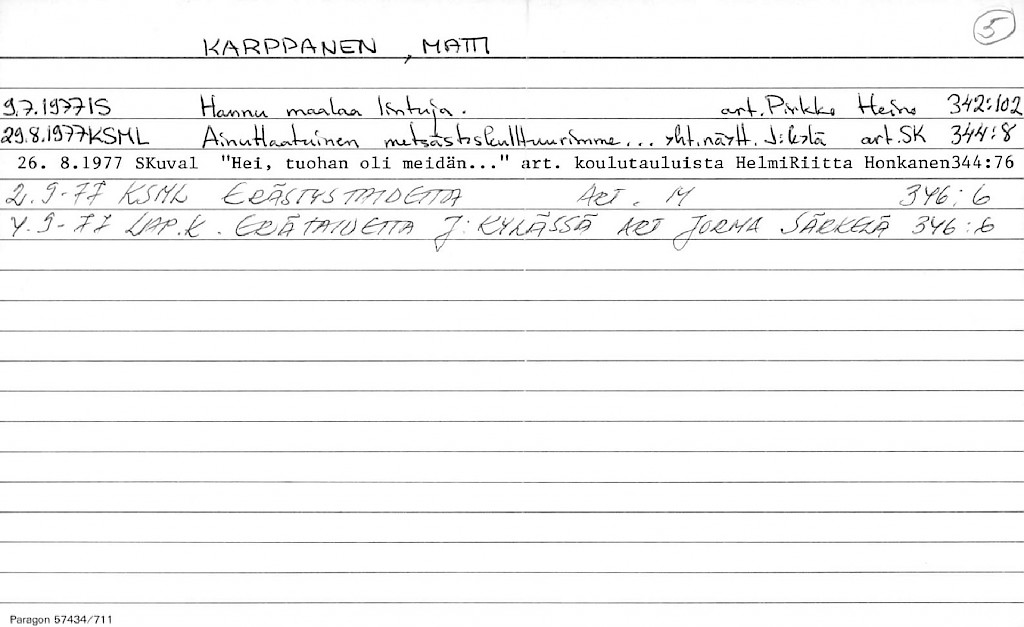 5
KARPPANEN, MATTI
9.7.1977 IS Hannu maalaa lintuja. art. Pirkko Heino 342:102
29.8.1977 KSML Ainutlaatuinen metsästskulttuurimme... yht.näytt. J:kstä art. SK 344:8
26. 8.1977 SKuval "Hei, tuohan oli meidän..." art. koulutauluista HelmiRiitta Honkanen344:76
2.9-77 KSML ERÄSTYSTAIDETTA ART. M 346:6
4.9-77 LAP.K. ERÄTAIDETTA J:KYLÄSSÄ ART JORMA SÄRKELÄ 346:6
Paragon 57434/711